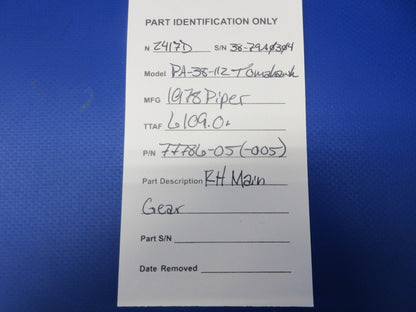 PART IDENTIFICATION ONLY
N 2417D S/N 38-79A0304
Model PA-38-112 Tomahawk
MFG 1978 Piper
TTAF 6109.0+
P/N 77786-05 (-005)
Part Description RH Main
Gear
Part S/N
Date Removed